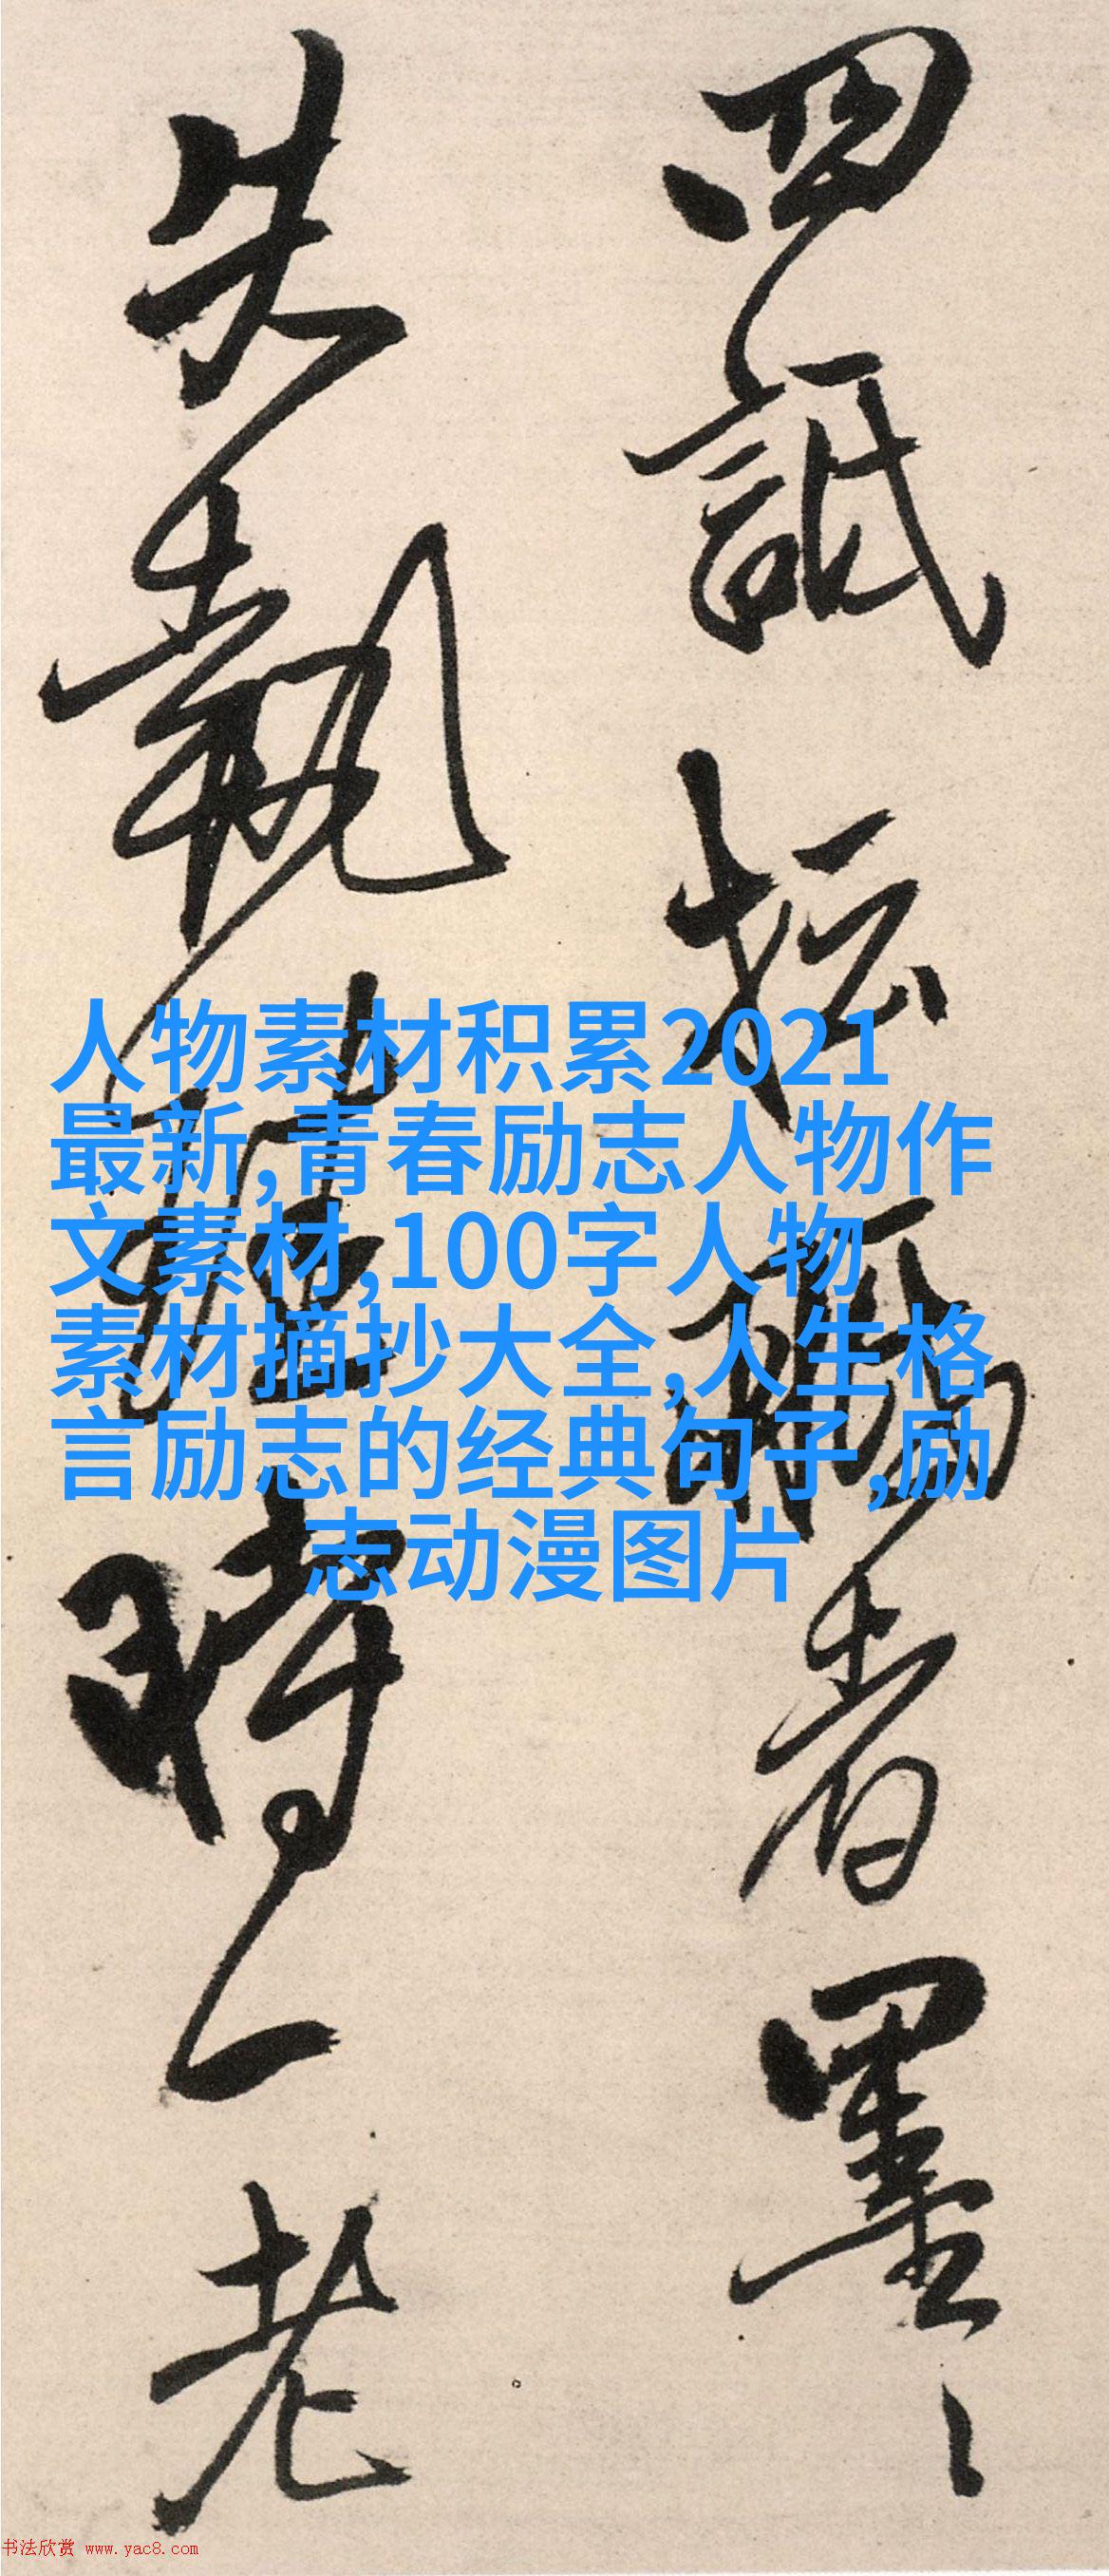 四詆坛
者墨
失執
時一老
人物素材积累2021
最新,青春励志人物作
文素材,100字人物
素材摘抄大全,人生格
言励志的经典句子,励
志动漫图片
书法欣赏 www.yac8.com